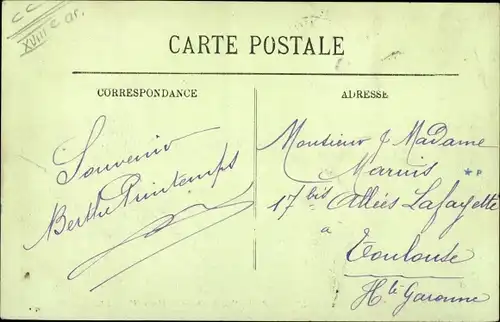 XVIII c ar.
CARTE POSTALE
CORRESPONDANCE
Souvenir
Berthe Printemps
ADRESSE
Monsieur & Madame
Marnis
17 bis Allées Lafayette
à
Toulouse
Hte Garonne